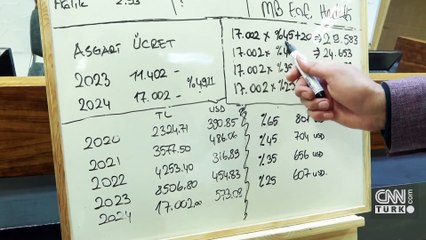 2.53
MB Enf.
ASGARİ ÜCRET
2023 11.402 -
2024 17.002 - %49,11
17.002 x %45+20 → 28.583
17.002 x → 24.653
17.002 x
17.002 x
TL USD
2020 2324,71 390.85
2021 3577.50 486.06
2022 4253.40 316.89
2023 8506,80 454,83
2024 17.002.00 573.08
%65 80
%45 704 USD
%35 656 USD
%25 607 USD
CNN
TÜRK